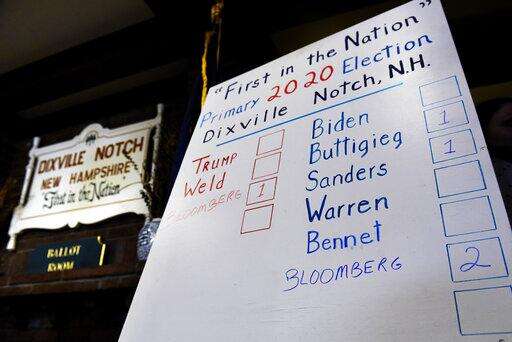 "First in the Nation"
Primary 2020 Election
Dixville Notch, N.H.
TRUMP
Weld
BLOOMBERG 1
Biden
Buttigieg 1
Sanders 1
Warren
Bennet
BLOOMBERG 2
DIXVILLE NOTCH
NEW HAMPSHIRE
"First in the Nation"
BALLOT
ROOM